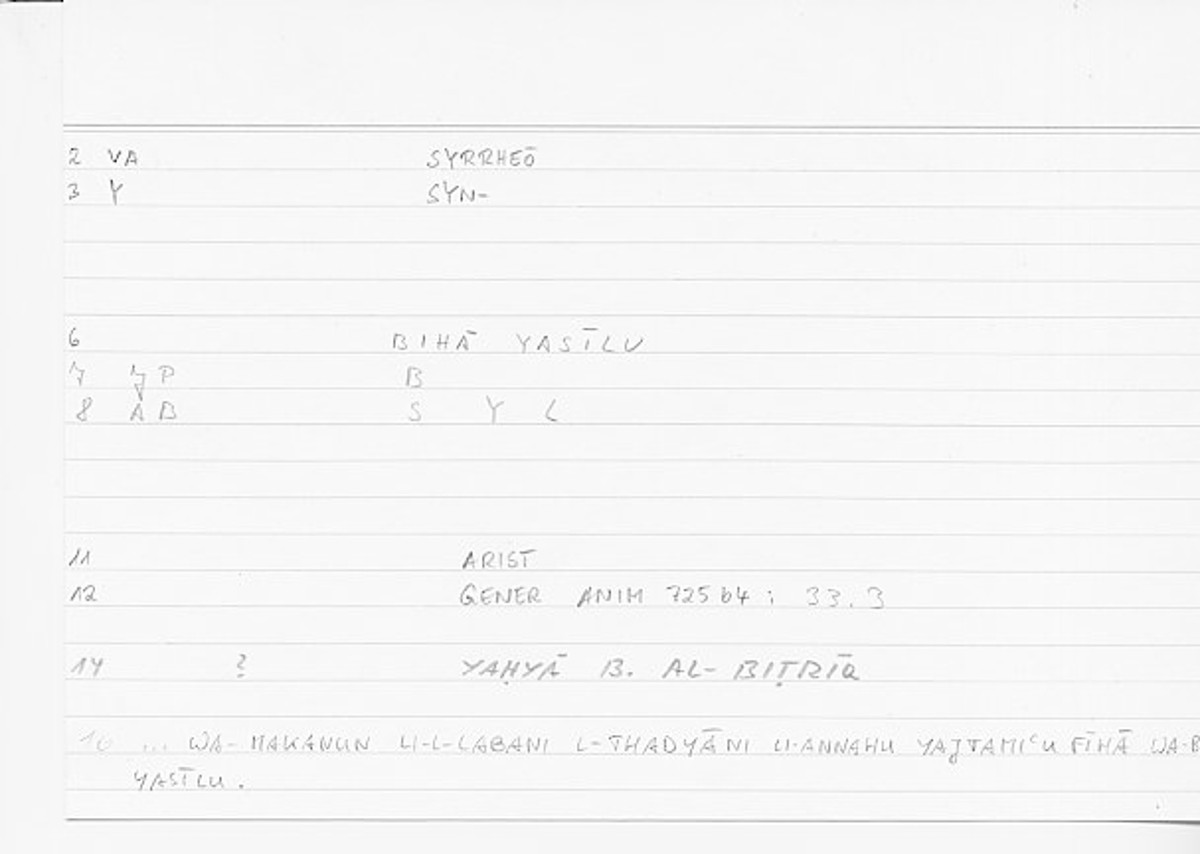 2 VA SYRRHEŌ
3 Y SYN-
6 BIHĀ YASĪLU
7 JP B
8 AB S Y L
11 ARIST
12 GENER ANIM 725b4; 33.3
14 ? YAḤYĀ B. AL-BIṬRĪQ
... WA-MAKANUN LI-L-LABANI L-THADYĀNI LI-ANNAHU YAJTAMIʿU FĪHĀ WA-B
YASĪLU.